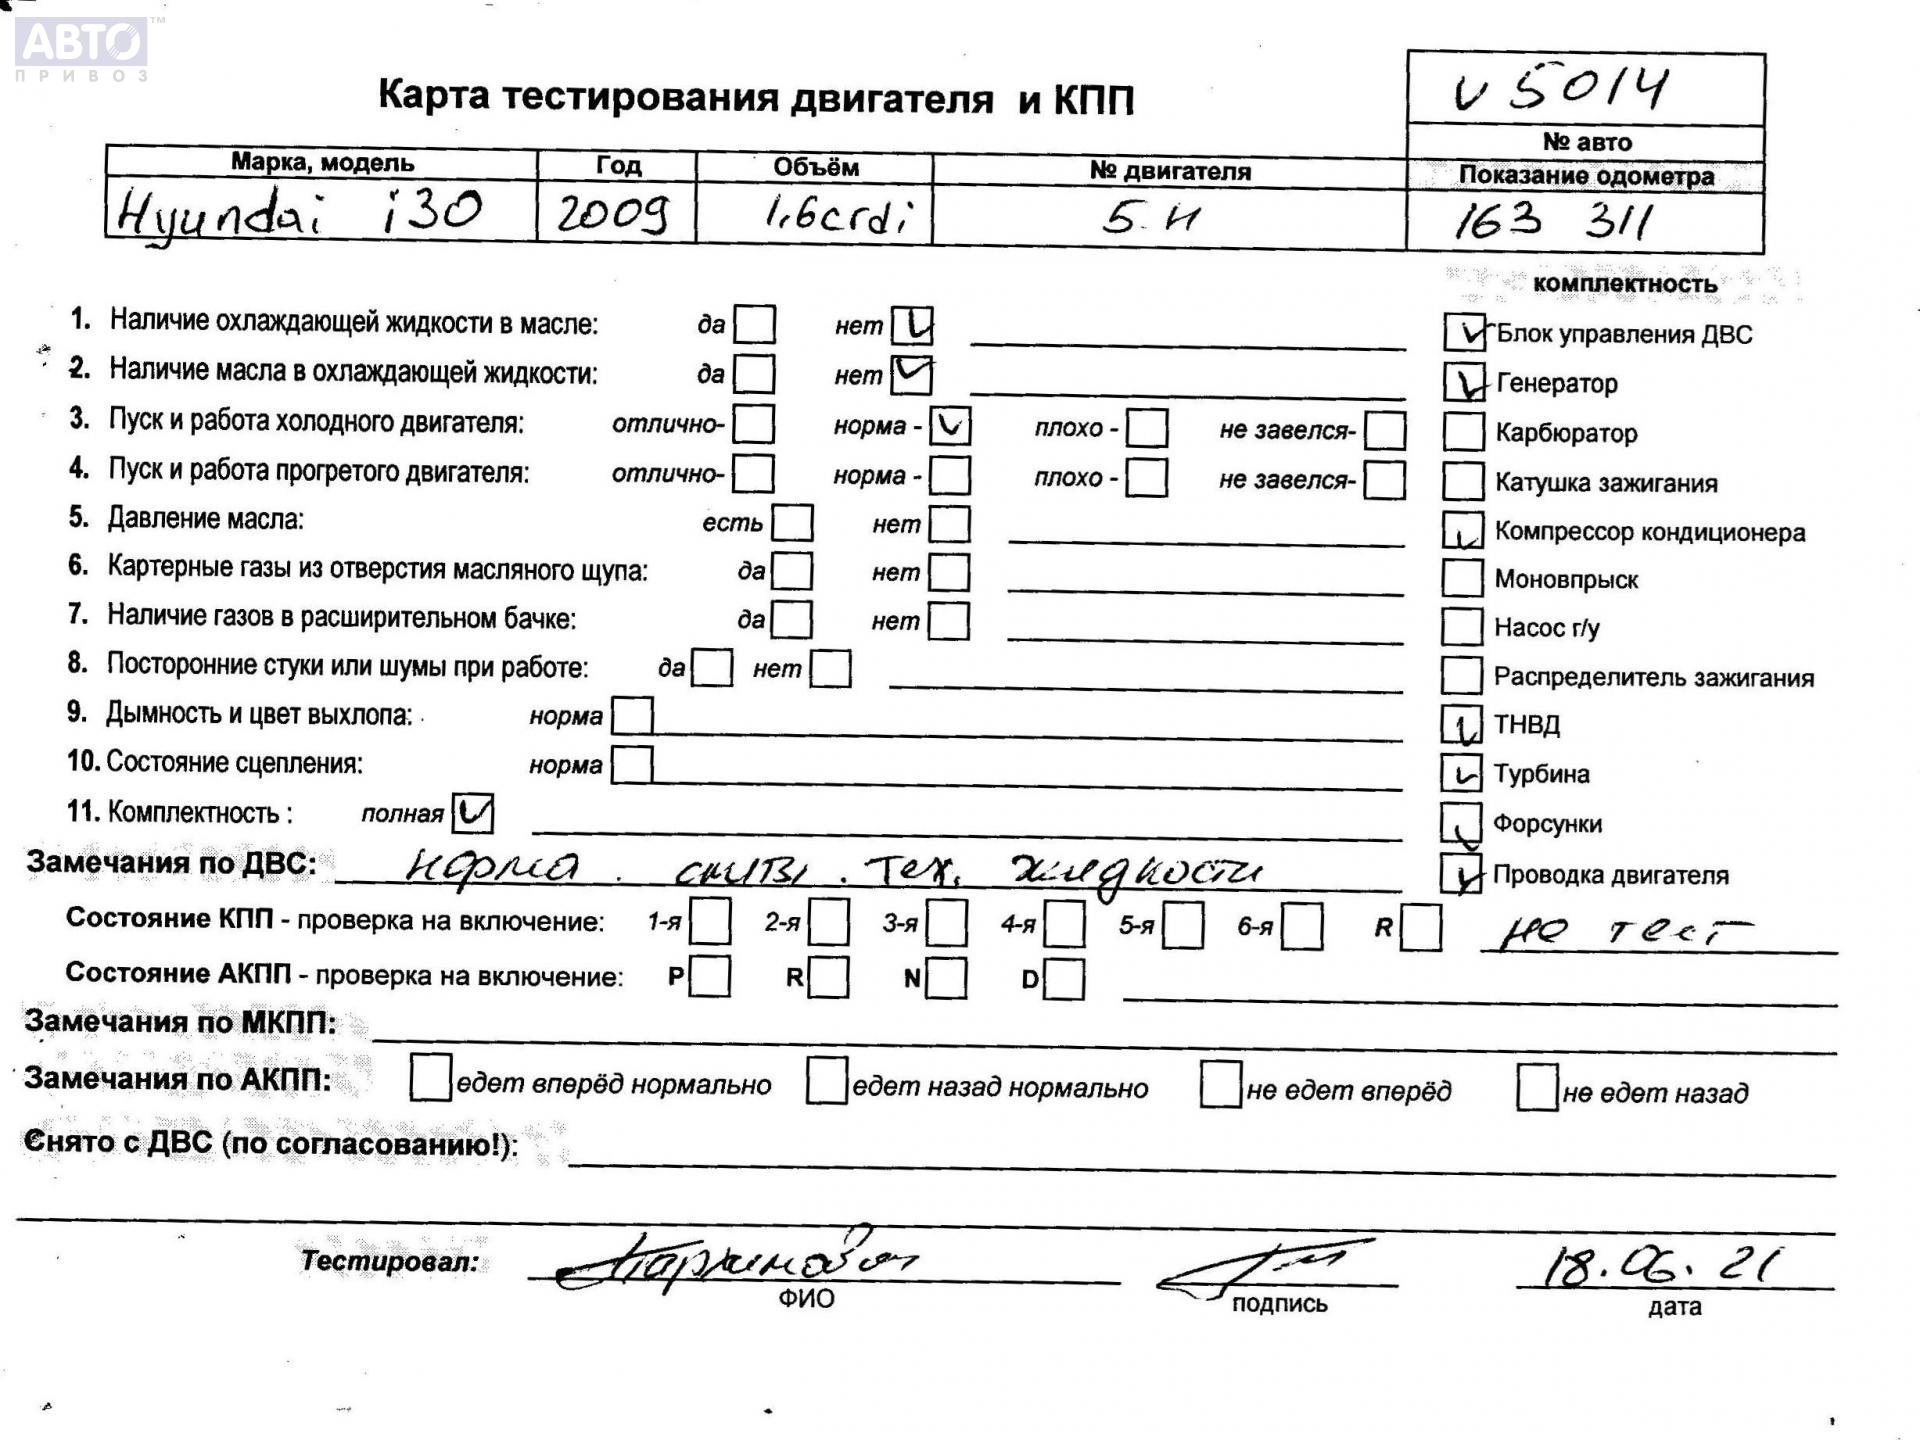 АВТО™
ПРИВОЗ
Карта тестирования двигателя и КПП
v 5014
№ авто
Марка, модель Год Объём № двигателя Показание одометра
Hyundai i30 2009 1,6crdi 5.Н 163 311
комплектность
1. Наличие охлаждающей жидкости в масле: да нет Блок управления ДВС
2. Наличие масла в охлаждающей жидкости: да нет Генератор
3. Пуск и работа холодного двигателя: отлично- норма - плохо - не завелся- Карбюратор
4. Пуск и работа прогретого двигателя: отлично- норма - плохо - не завелся- Катушка зажигания
5. Давление масла: есть нет Компрессор кондиционера
6. Картерные газы из отверстия масляного щупа: да нет Моновпрыск
7. Наличие газов в расширительном бачке: да нет Насос г/у
8. Посторонние стуки или шумы при работе: да нет Распределитель зажигания
9. Дымность и цвет выхлопа: норма ТНВД
10. Состояние сцепления: норма Турбина
11. Комплектность : полная Форсунки
Замечания по ДВС: норма . слиты . тех. жидкости Проводка двигателя
Состояние КПП - проверка на включение: 1-я 2-я 3-я 4-я 5-я 6-я R не тест
Состояние АКПП - проверка на включение: P R N D
Замечания по МКПП:
Замечания по АКПП: едет вперёд нормально едет назад нормально не едет вперёд не едет назад
Снято с ДВС (по согласованию!):
Тестировал: 18.06.21
ФИО подпись дата